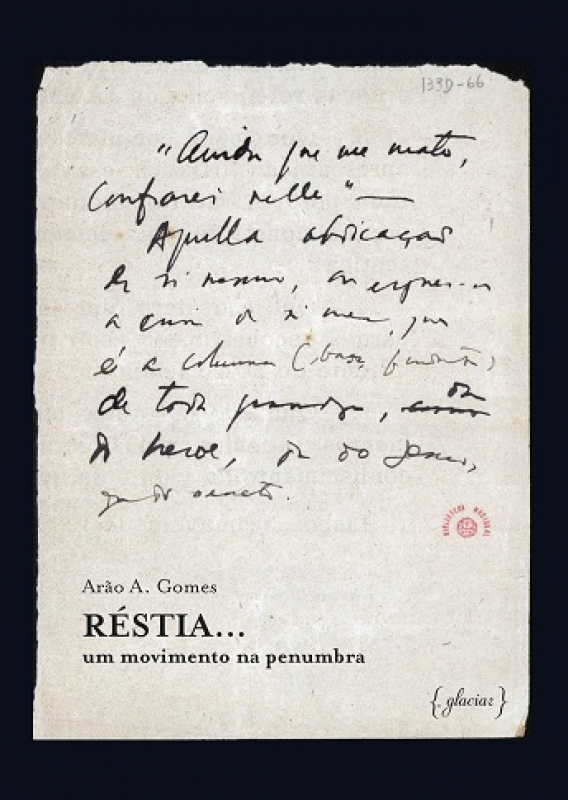 133D-66
"Ainda que me mate,
Confiarei nelle"—
Aquella abdicação
de si mesmo, ou erguer-se
a cima de si mesmo, que
é a columna (base,
de toda grandeza,
do heroe, ou do genio,
BIBLIOTECA NACIONAL
Arão A. Gomes
RÉSTIA...
um movimento na penumbra
{ glaciar }